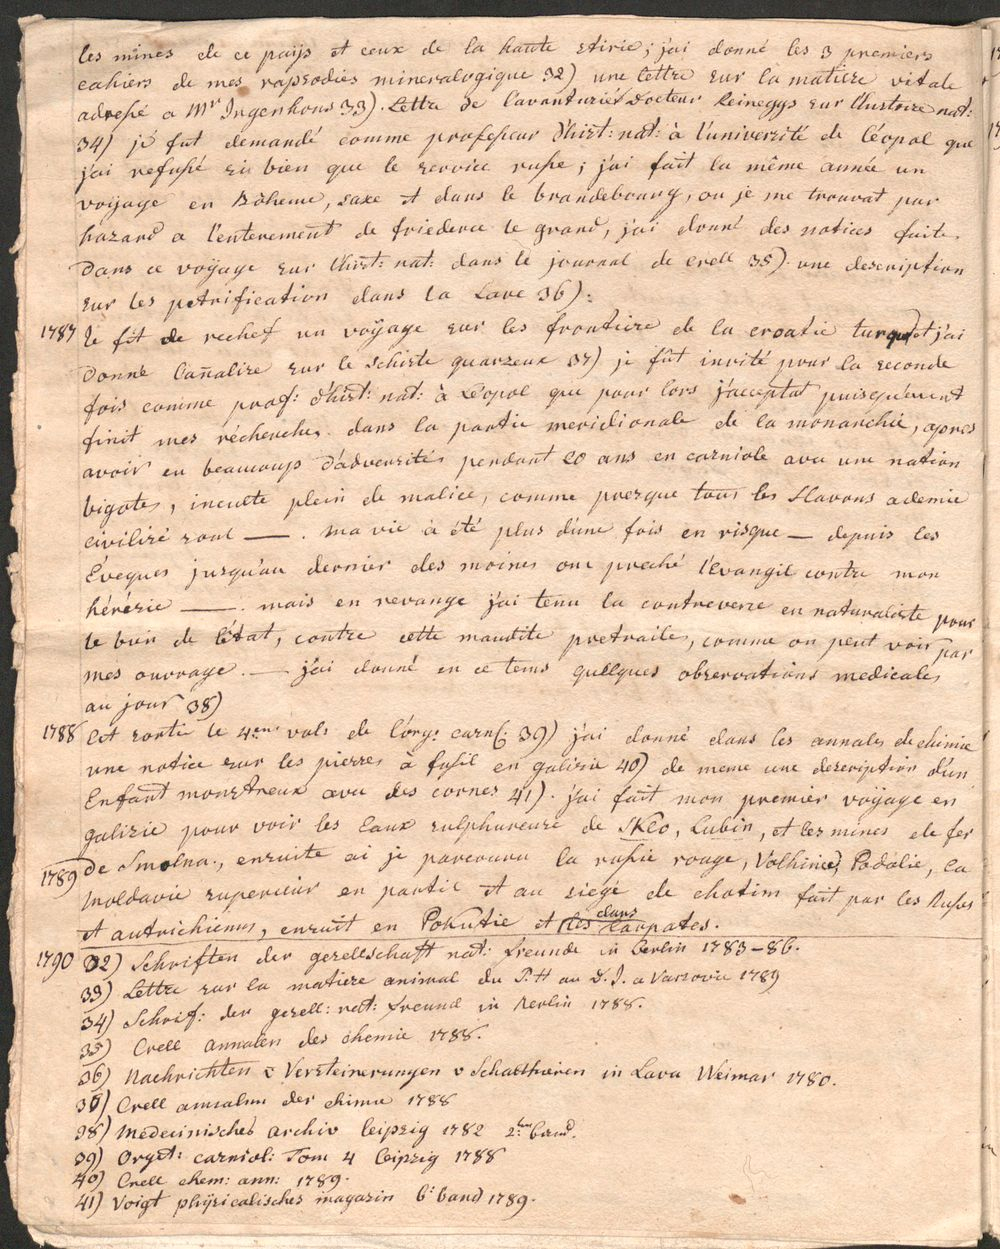 les mines de ce païs et ceux de la haute stirie; j'ai donné les 3 premiers
cahiers de mes rapsodies mineralogique 32) une lettre sur la matiere vitale
adressé a Mr Ingenhous 33). Lettre de l'avanturier Docteur Reineggs sur l'histoire nat:
34) je fut demandé comme professeur d'hist: nat: à l'université de Léopol que
j'ai refusé si bien que le service russe; j'ai fait la même année un
voyage en Bôheme, saxe et dans le brandebourg, ou je me trouvat par
hazard a l'enterement de friederic le grand, j'ai donné des notices faite
dans ce voÿage sur l'hist: nat: dans le journal de crell 35) une description
sur les petrification dans la Lave 36):
1787 Je fit de rechef un voÿage sur les frontiere de la croatie turque et j'ai
donné l'añalize sur le schiste quarzeux 37) je fût invité pour la seconde
fois comme prof: d'hist: nat: à Léopol que pour lors j'acceptat
finit mes récherches dans la partie meridionale de la monarchie, apres
avoir eu beaucoup d'adversités pendant 20 ans en carniole avec une nation
bigotes, inculte plein de malice, comme presque tous les Slavons ademie
civilizé sont — . ma vie à été plus d'une fois en risque — depuis les
Éveques jusqu'au dernier des moines ont preché l'Evangil contre mon
hérézie — . mais en revange j'ai tenu la controverse en naturaliste pour
le bien de l'état, contre cette maudite pretraile, comme on peut voir par
mes ouvrage. — j'ai donné en ce tems quelques observations medicales
au jour 38)
1788 Est sortie le 4eme vols de l'oryc. carn: 39) j'ai donné dans les annales de chimie
une notice sur les pierres à fusil en galizie 40) de meme une description d'un
Enfant monstreux avec des cornes 41). j'ai fait mon premier voÿage en
galizie pour voir les Eaux sulphureuse de Sklo, Lubin, et les mines de fer
1789 de Smolna, ensuite ai je parcouru la russie rouge, Volhinie, Podolie, la
moldavie superieur en partie et au siegé de chotim fait par les Russes
et autrichiens, ensuit en Pokutie et dans les Carpates.
1790 32) Schriften der gesellschaft nat: freunde in Berlin 1783–86.
33) Lettre sur la matiere animal du P.H au D.J. a Varsovie 1789
34) Schrif: der gesell: nat: freund in Berlin 1788.
35) Crell annalen des chemie 1788.
36) Nachrichten v Versteinerungen v Schalthieren in Lava Weimar 1780.
37) Crell annalen der chimie 1788
38) Medecinisches archiv leipzig 1782 2ten band.
39) Oryct: carniol: Tom 4 leipzig 1788
40) Crell chem: ann: 1789.
41) Voigt phÿsicalisches magazin 6: band 1789.